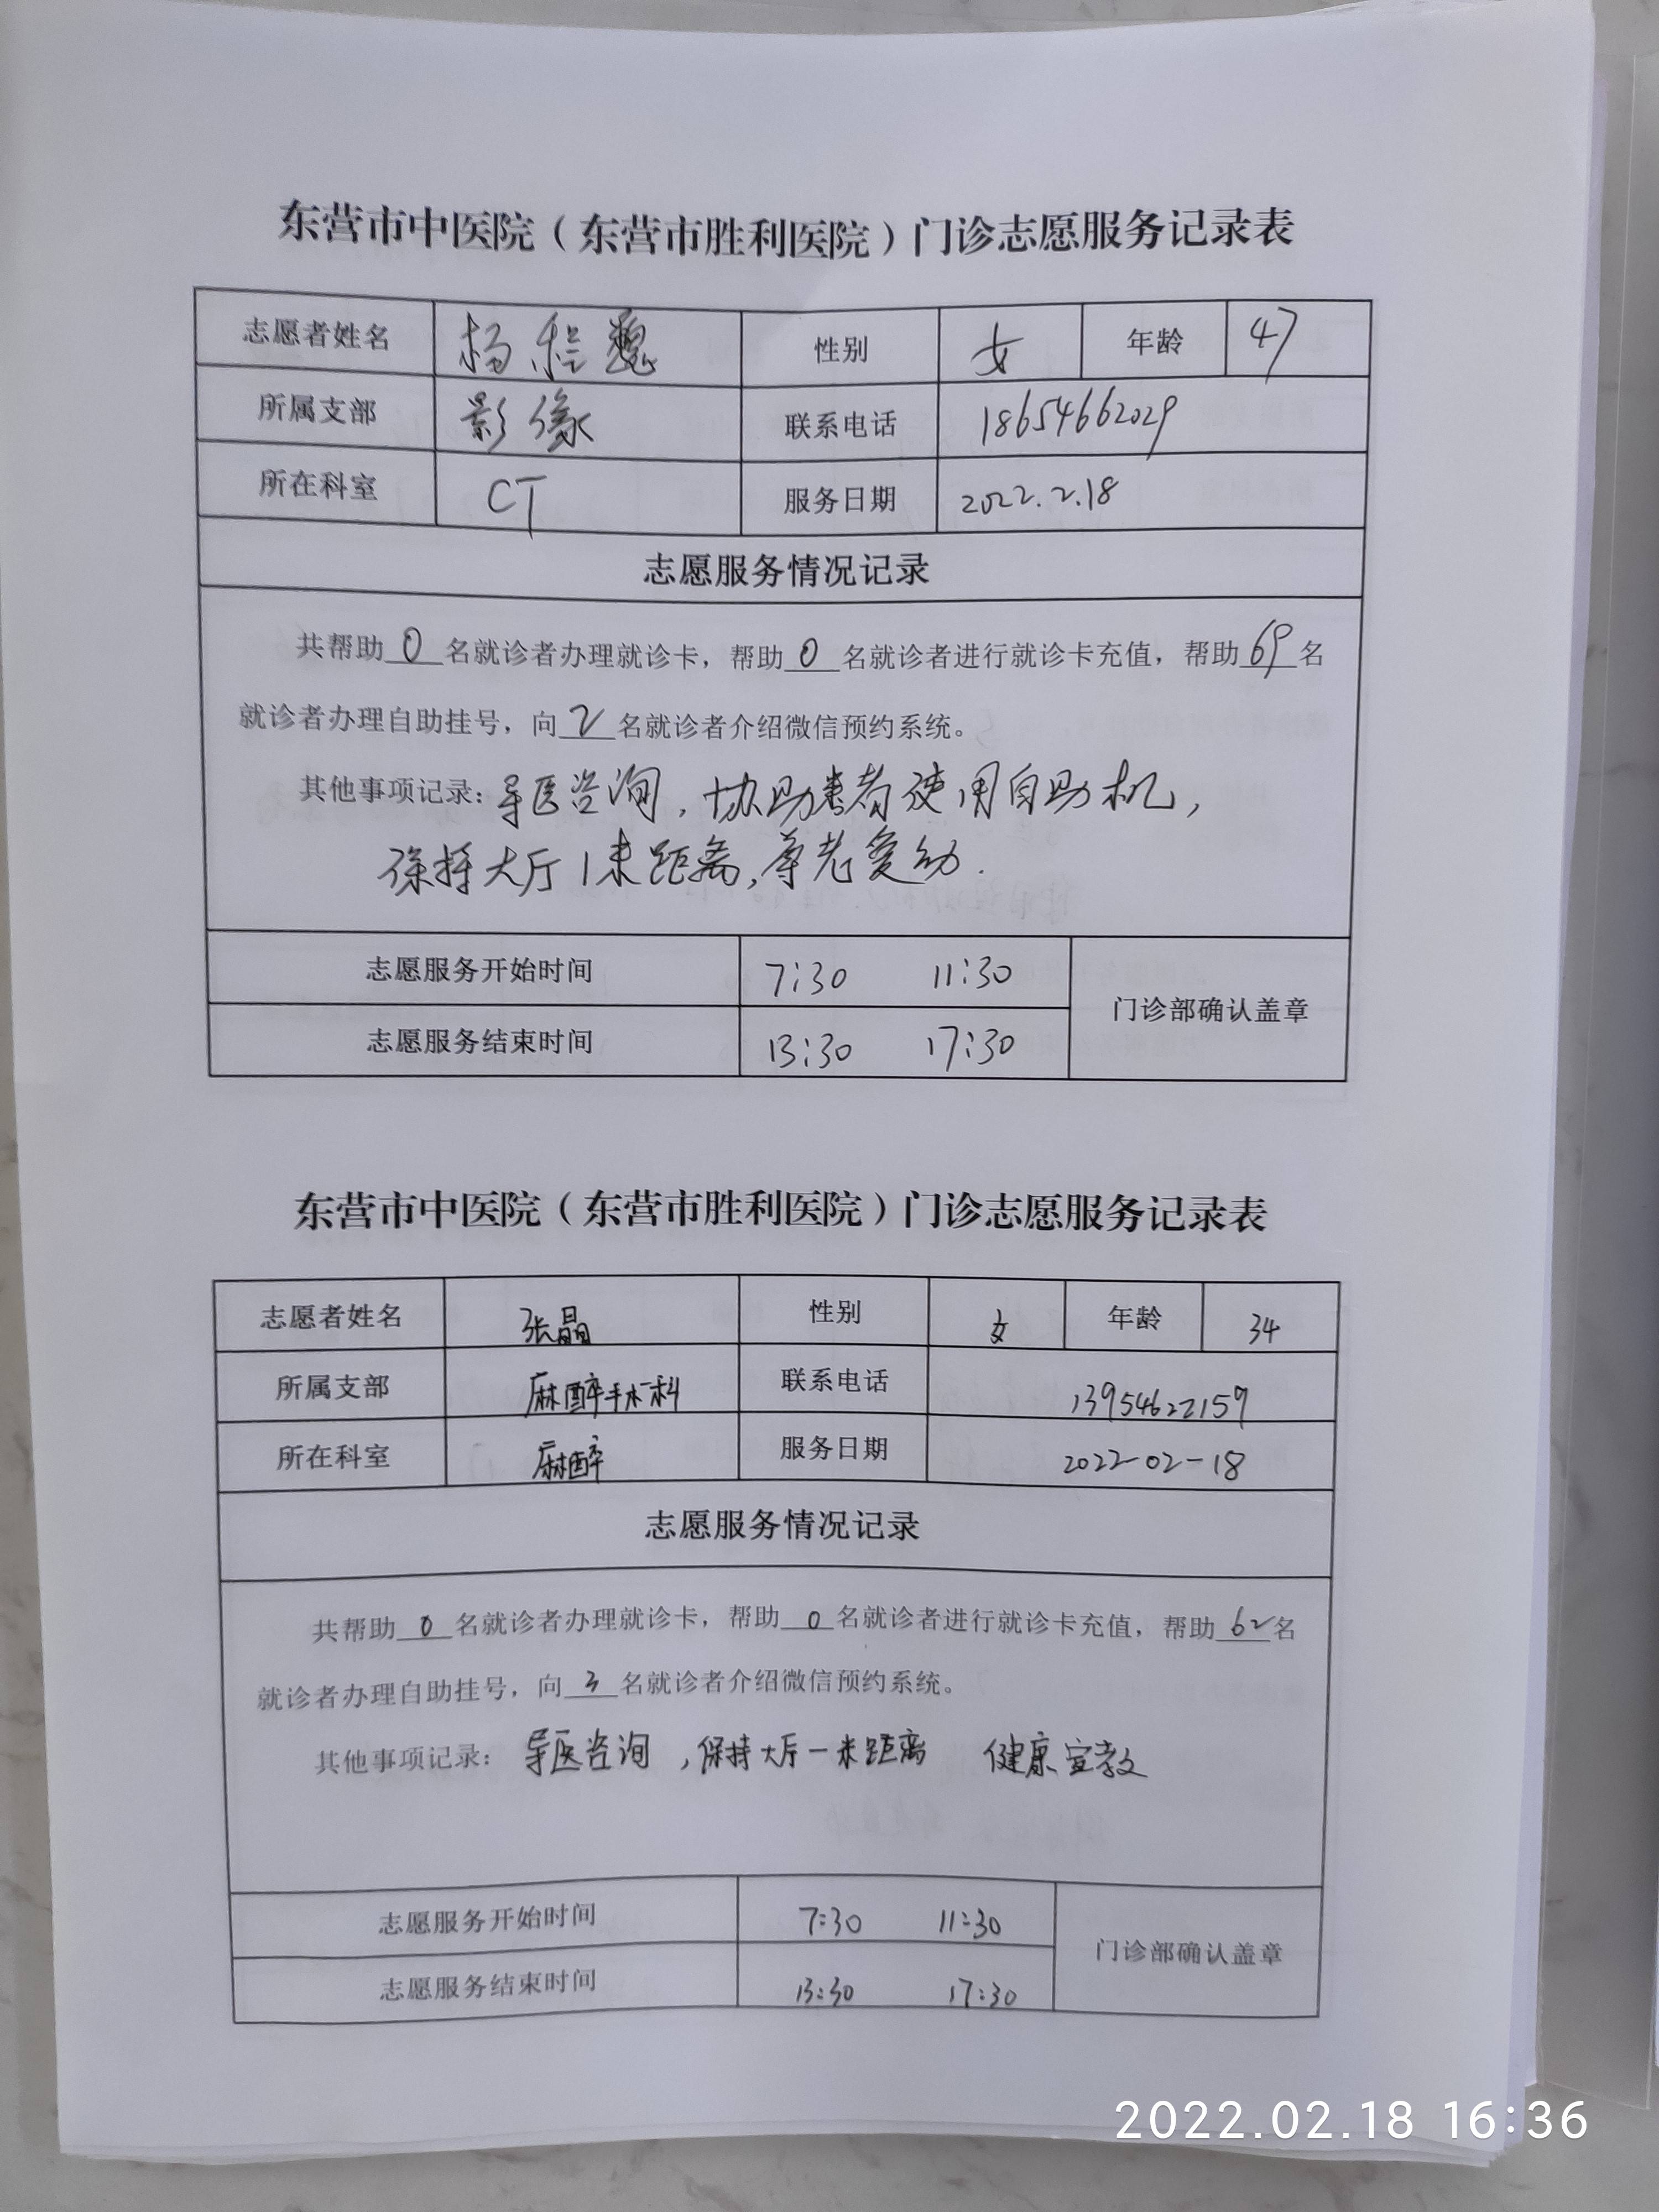 东营市中医院（东营市胜利医院）门诊志愿服务记录表
志愿者姓名 杨 性别 女 年龄 47
所属支部 影像 联系电话 18654662029
所在科室 CT 服务日期 2022.2.18
志愿服务情况记录
共帮助0名就诊者办理就诊卡，帮助0名就诊者进行就诊卡充值，帮助69名
就诊者办理自助挂号，向2名就诊者介绍微信预约系统。
其他事项记录：导医咨询，协助患者使用自助机，
保持大厅1米距离，尊老爱幼.
志愿服务开始时间 7:30 11:30
门诊部确认盖章
志愿服务结束时间 13:30 17:30
东营市中医院（东营市胜利医院）门诊志愿服务记录表
志愿者姓名 张晶 性别 女 年龄 34
所属支部 麻醉手术科 联系电话 13954622159
所在科室 麻醉 服务日期 2022-02-18
志愿服务情况记录
共帮助0名就诊者办理就诊卡，帮助0名就诊者进行就诊卡充值，帮助62名
就诊者办理自助挂号，向3名就诊者介绍微信预约系统。
其他事项记录：导医咨询，保持大厅一米距离 健康宣教
志愿服务开始时间 7:30 11:30
门诊部确认盖章
志愿服务结束时间 13:30 17:30
2022.02.18 16:36